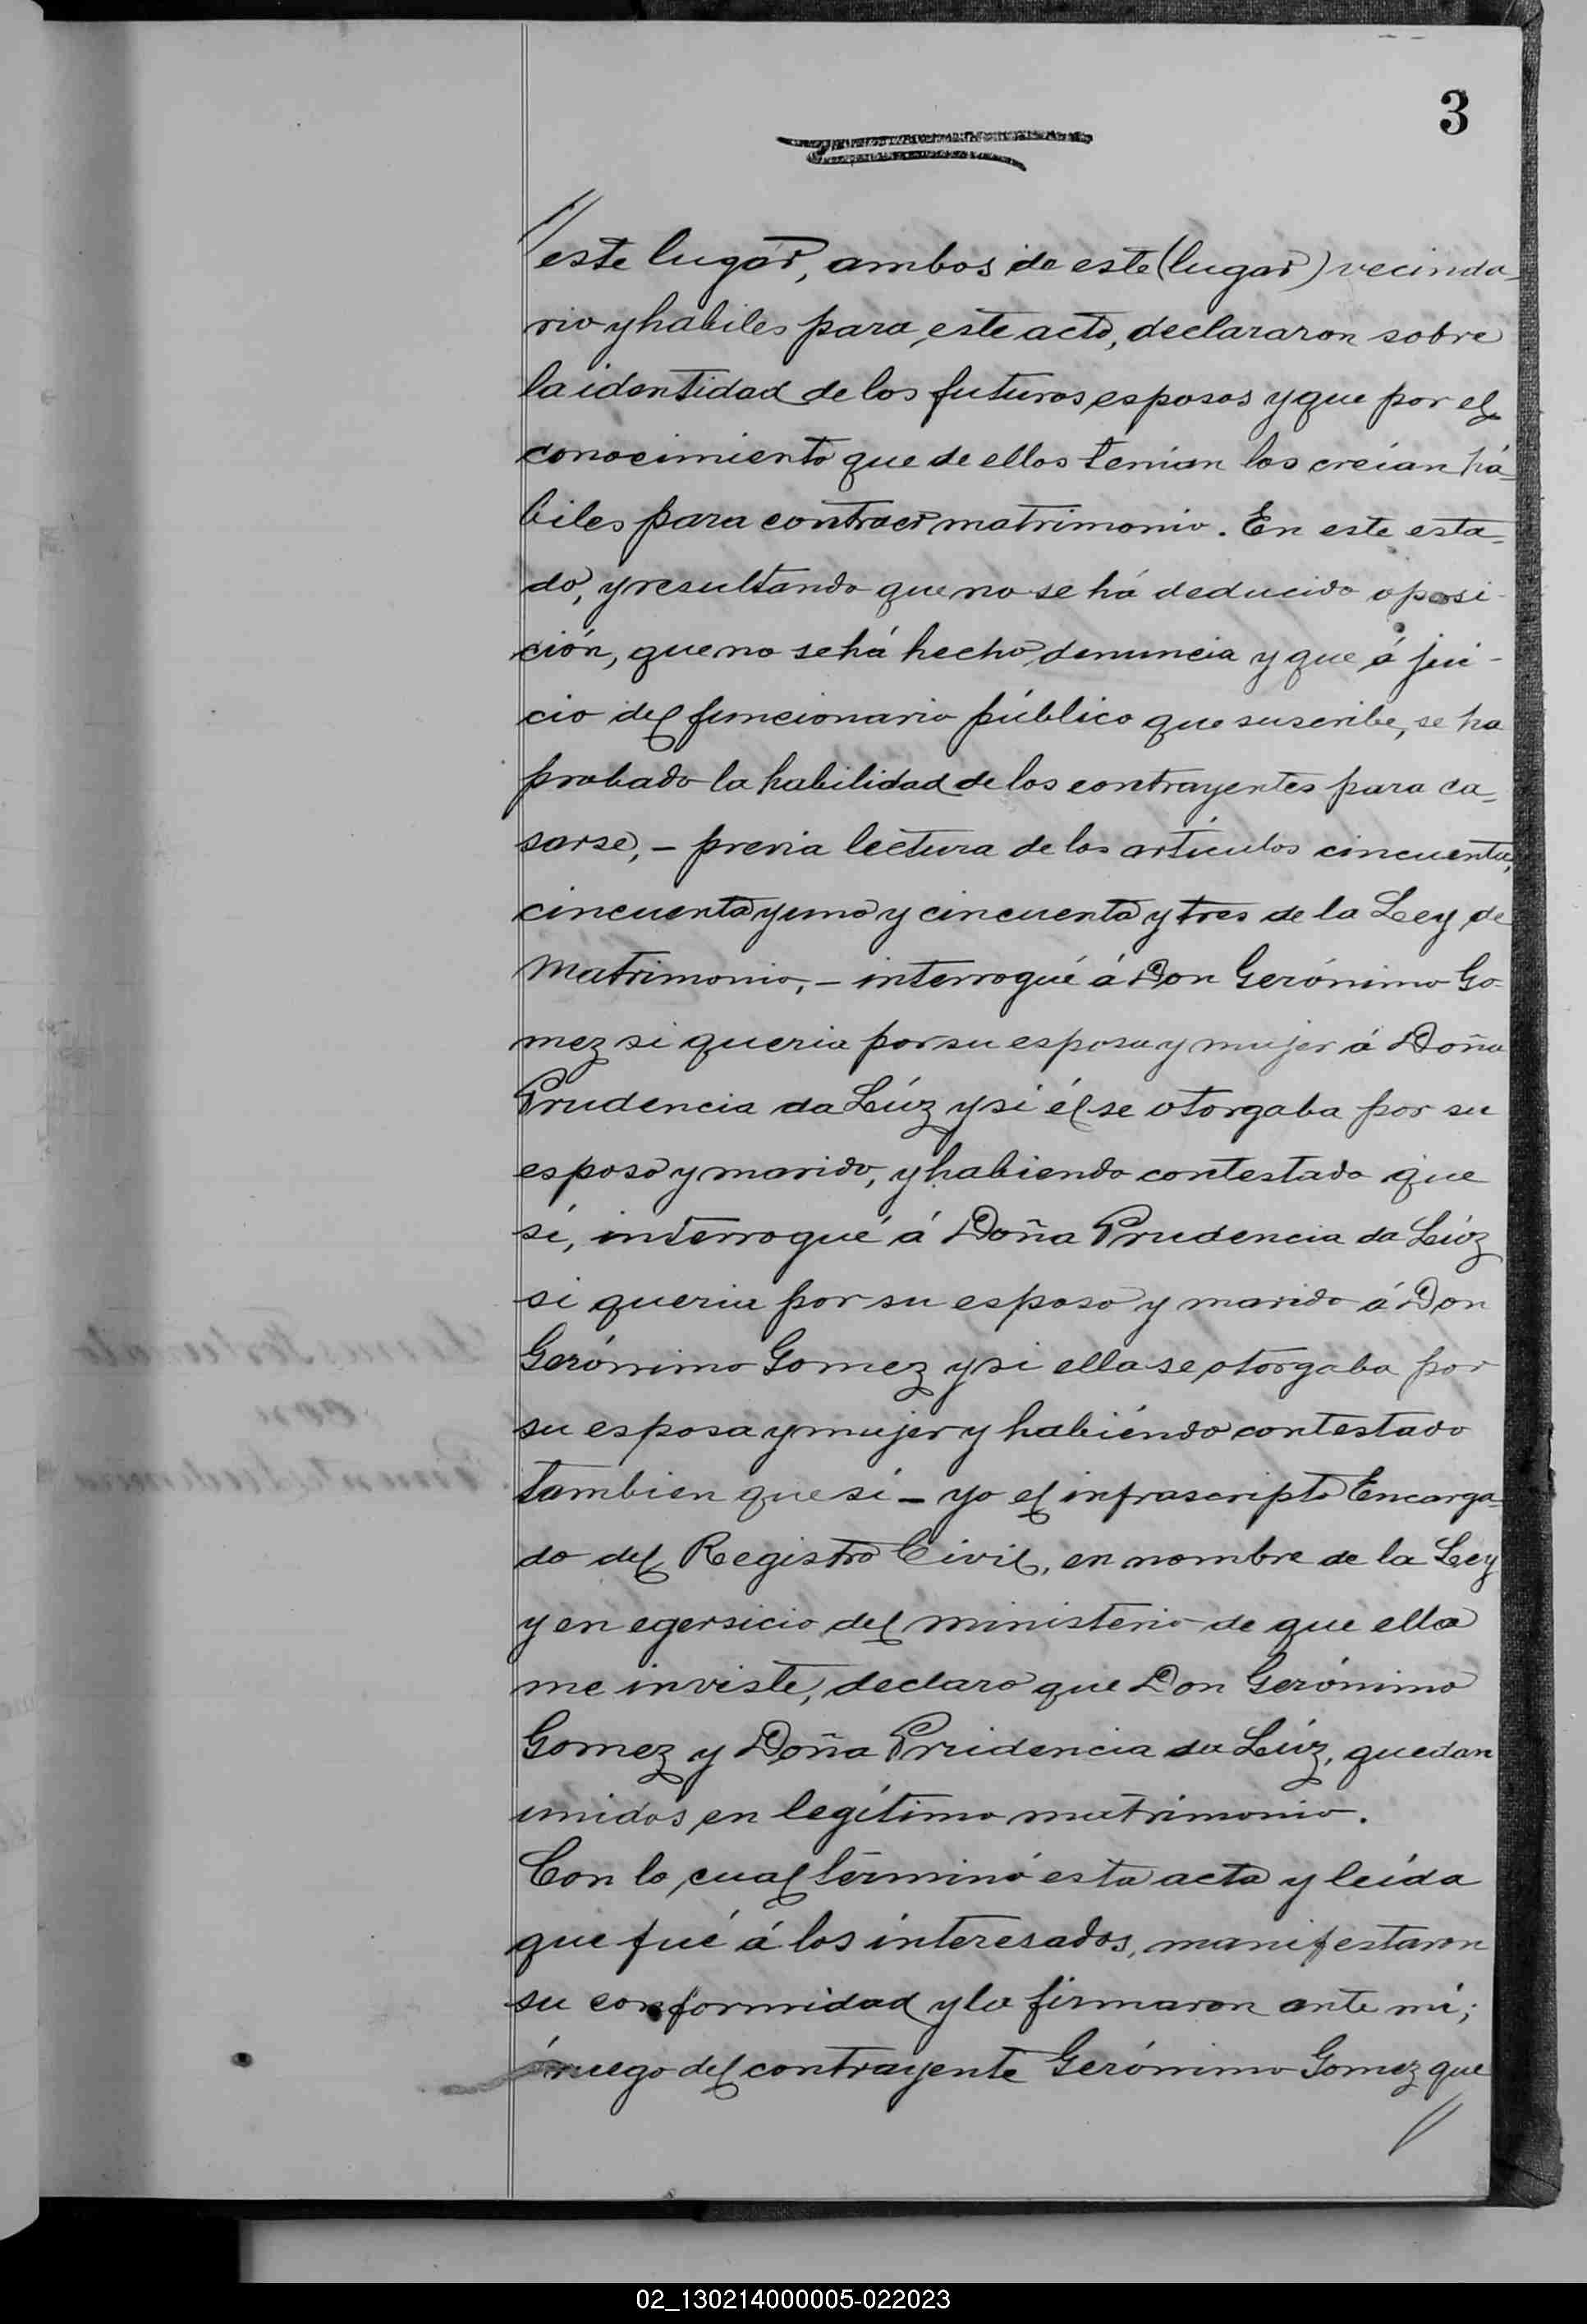 3
// este lugar, ambos de este (lugar) vecinda-
rio y habiles para este acto, declararon sobre
la identidad de los futuros esposos y que por el
conocimiento que de ellos tenian los creían há-
biles para contraer matrimonio. En este esta-
do, y resultando que no se há deducido oposi-
ción, que no se há hecho denuncia y que á jui-
cio del funcionario público que suscribe, se ha
probado la habilidad de los contrayentes para ca-
sarse, - previa lectura de los artículos cincuenta,
cincuenta y uno y cincuenta y tres de la Ley de
Matrimonio, - interrogué á Don Gerónimo Go-
mez si queria por su esposa y mujer á Doña
Prudencia da Lúz y si él se otorgaba por su
esposo y marido, y habiendo contestado que
sí, interrogué á Doña Prudencia da Lúz
si queria por su esposo y marido á Don
Gerónimo Gomez y si ella se otorgaba por
su esposa y mujer y habiéndo contestado
tambien que sí - yo el infrascripto Encarga-
do del Registro Civil, en nombre de la Ley
y en egersicio del ministerio de que ella
me inviste, declaro que Don Gerónimo
Gomez y Doña Prudencia da Lúz, quedan
unidos en legítimo matrimonio.
Con lo cual términó esta acta y leída
que fué á los interesados, manifestaron
su conformidad y la firmaron ante mi;
á ruego del contrayente Gerónimo Gomez que
//
02_130214000005-022023